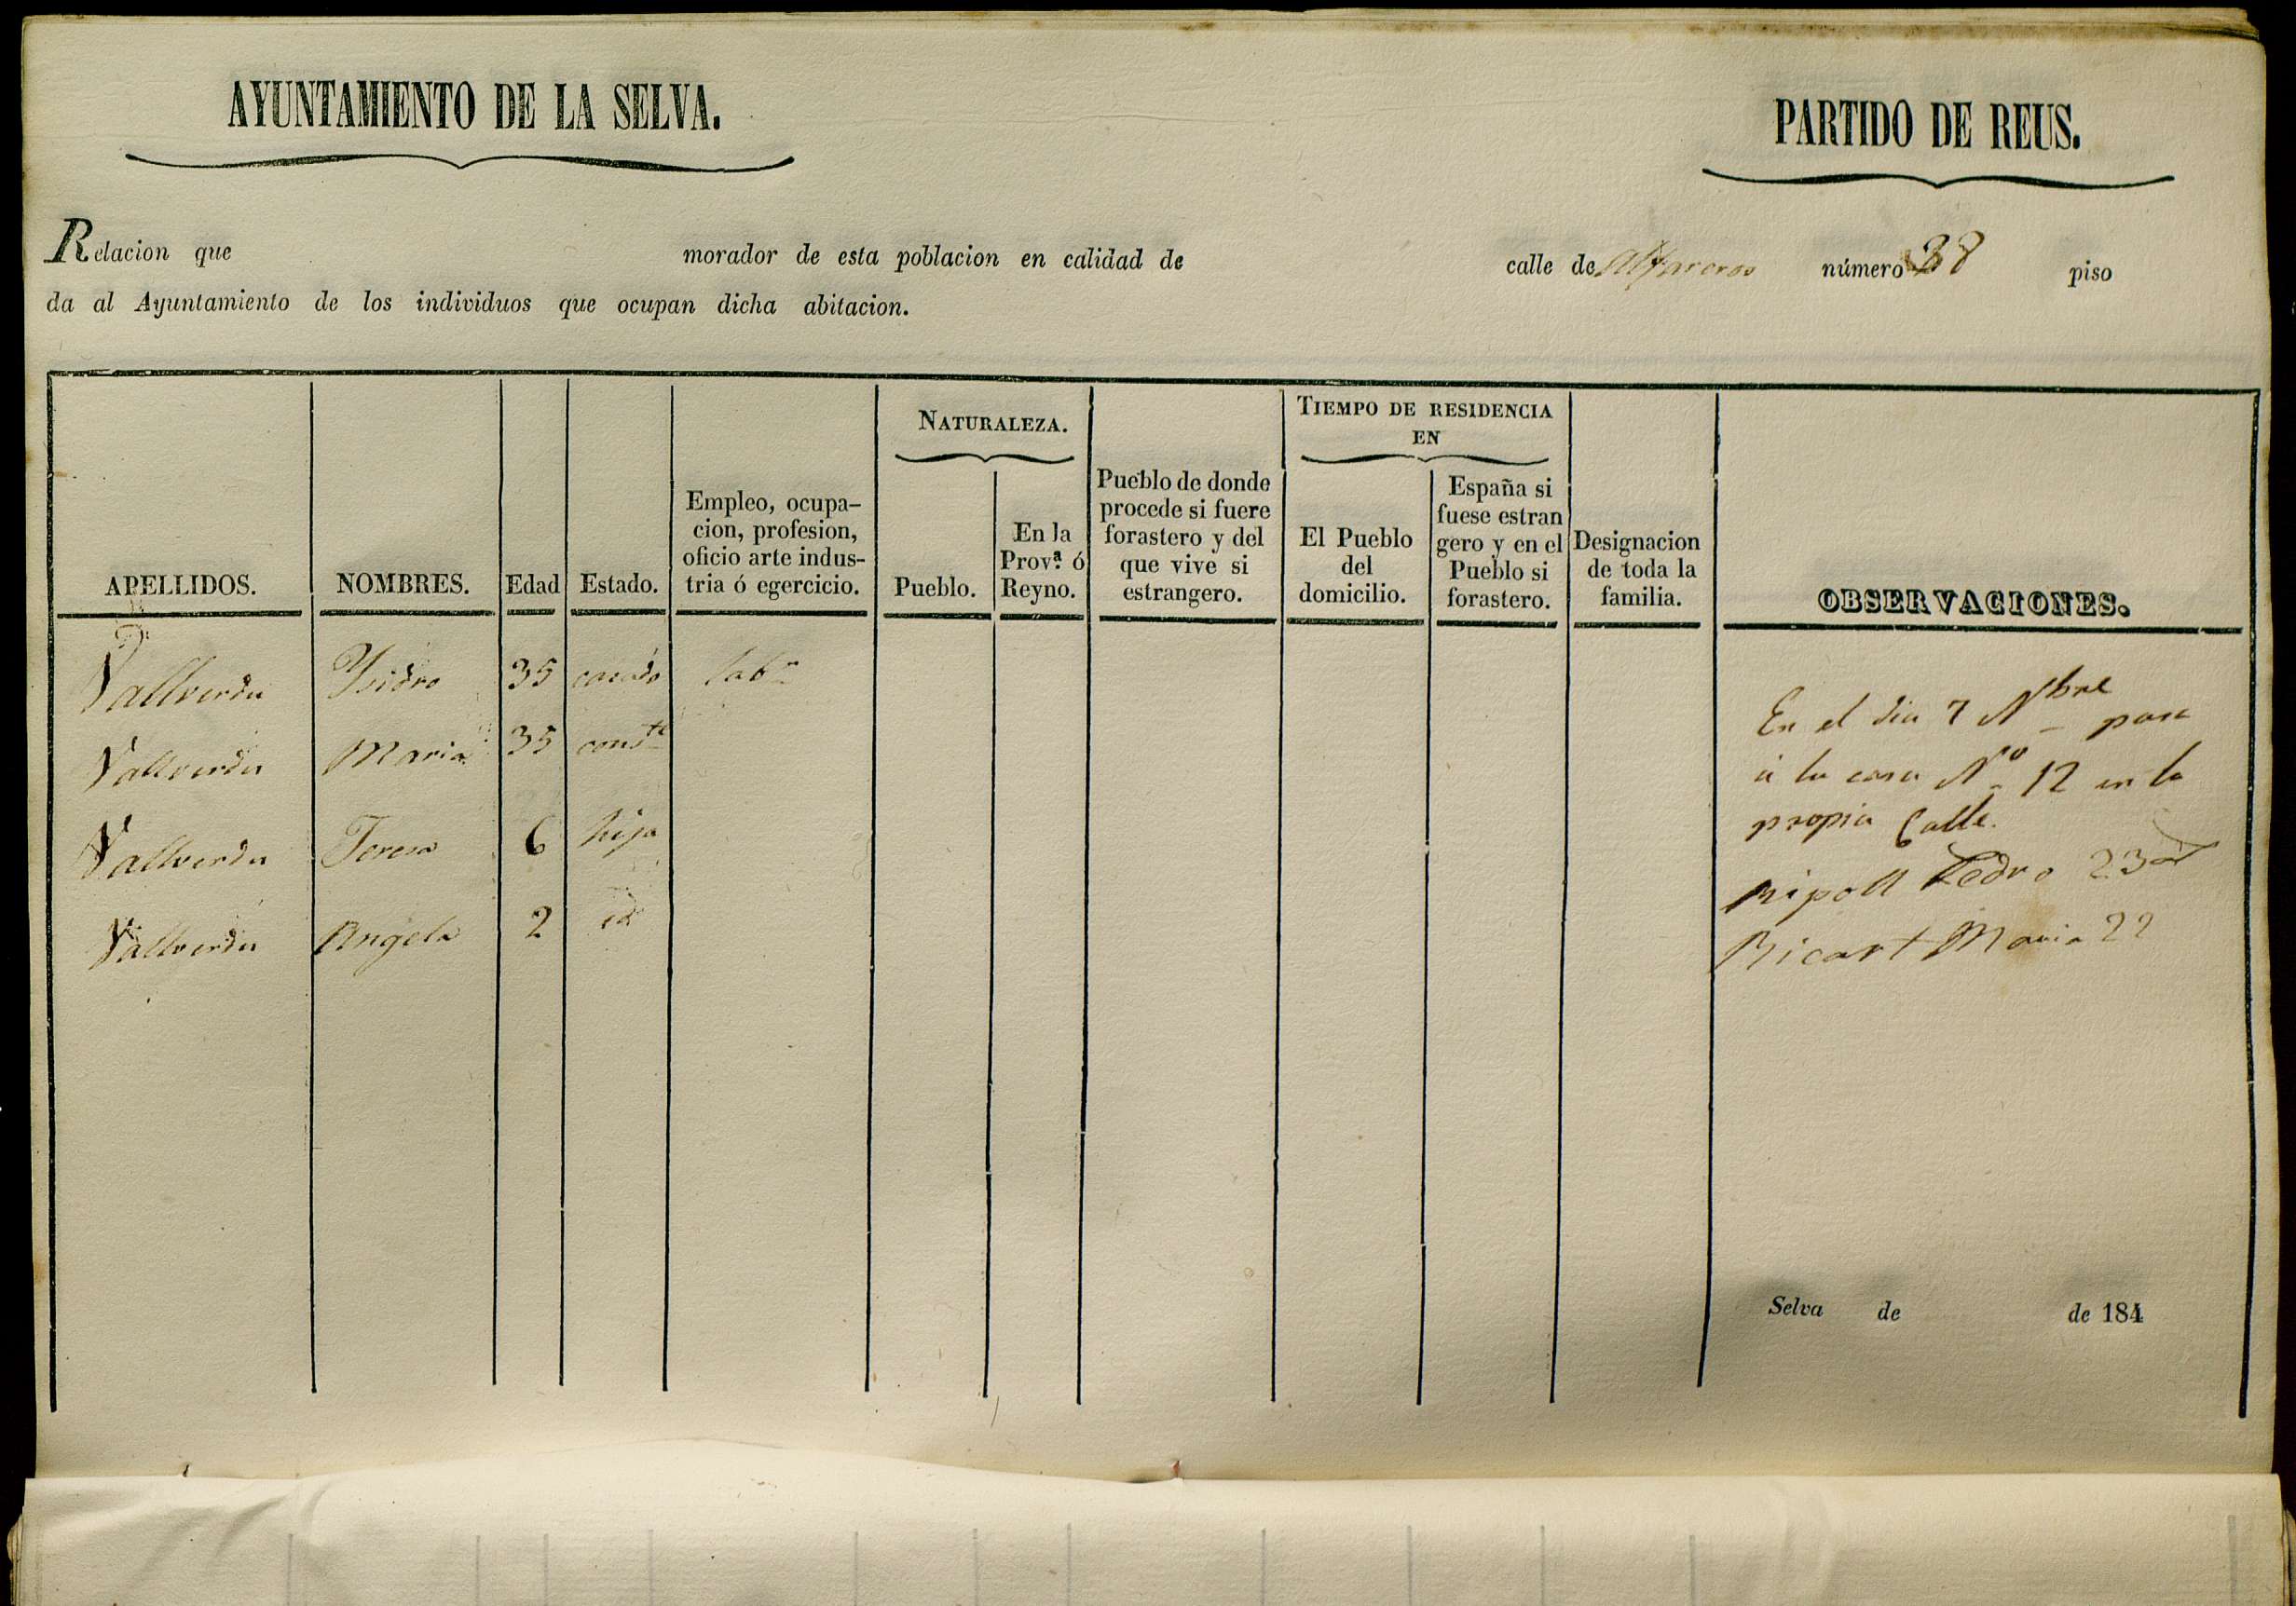 AYUNTAMIENTO DE LA SELVA.
PARTIDO DE REUS.
Relacion que morador de esta poblacion en calidad de calle de Alfareros número 38 piso
da al Ayuntamiento de los individuos que ocupan dicha abitacion.
APELLIDOS.
NOMBRES.
Edad
Estado.
Empleo, ocupa-
cion, profesion,
oficio arte indus-
tria ó egercicio.
NATURALEZA.
Pueblo.
En la
Prov.ª ó
Reyno.
Pueblo de donde
procede si fuere
forastero y del
que vive si
estrangero.
TIEMPO DE RESIDENCIA
EN
El Pueblo
del
domicilio.
España si
fuese estran
gero y en el
Pueblo si
forastero.
Designacion
de toda la
familia.
OBSERVACIONES.
Vallverdu Ysidro 35 casado labr
Vallverdu Maria 35 conste
Vallverdu Teresa 6 hija
Vallverdu Angela 2 id
En el dia 7 Nbre pasa
á la casa Nº 12 en la
propia Calle.
Ripoll Pedro 23
Ricart Maria 22
Selva de de 184